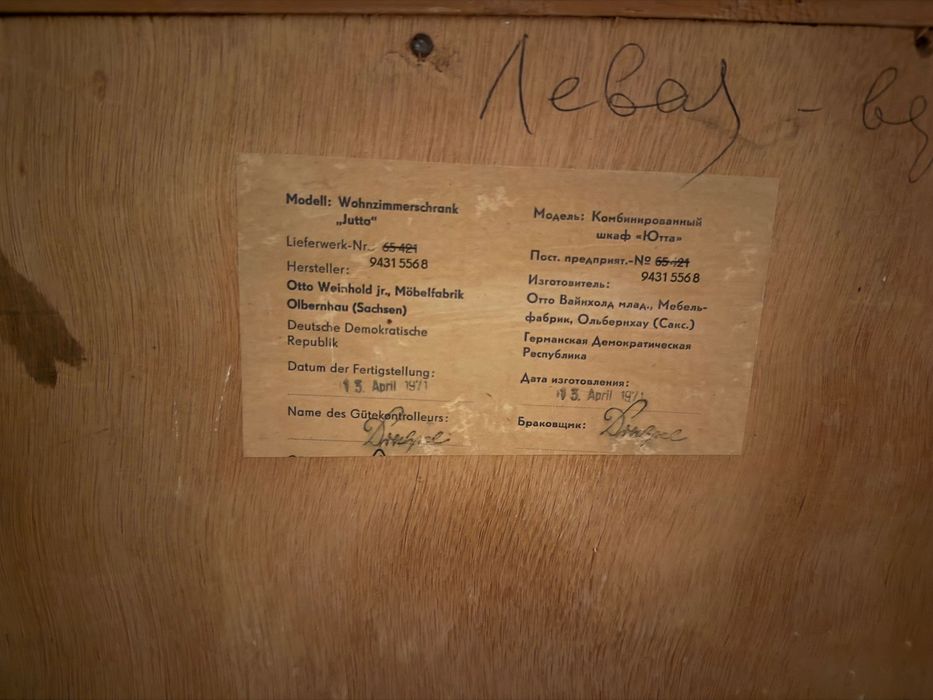 Левая -
Modell: Wohnzimmerschrank
„Jutta“
Lieferwerk-Nr. 65 421
94315568
Hersteller:
Otto Weinhold jr., Möbelfabrik
Olbernhau (Sachsen)
Deutsche Demokratische
Republik
Datum der Fertigstellung:
13. April 1971
Name des Gütekontrolleurs:
Модель: Комбинированный
шкаф «Ютта»
Пост. предприят.-№ 65 421
94315568
Изготовитель:
Отто Вайнхолд млад., Мебель-
фабрик, Ольбернхау (Сакс.)
Германская Демократическая
Республика
Дата изготовления:
13. April 1971
Браковщик: